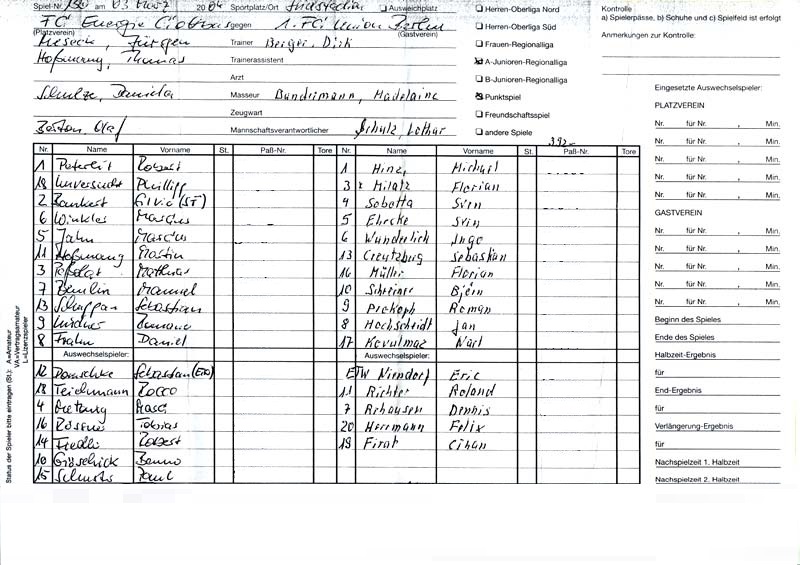 Spiel-Nr. am 03 2004 Sportplatz/Ort Ausweichplatz
FC Energie Cottbus gegen 1. FC Union Berlin
(Platzverein) (Gastverein)
Jürgen Trainer Berger, Dirk
Thomas Trainerassistent
Arzt
Schulze, Daniela Masseur Bundermann, Madelaine
Zeugwart
Boston, Olaf Mannschaftsverantwortlicher Schulz, Lothar
Herren-Oberliga Nord
Herren-Oberliga Süd
Frauen-Regionalliga
A-Junioren-Regionalliga
B-Junioren-Regionalliga
Punktspiel
Freundschaftsspiel
andere Spiele
Kontrolle
a) Spielerpässe, b) Schuhe und c) Spielfeld ist erfolgt
Anmerkungen zur Kontrolle:
Nr. Name Vorname St. Paß-Nr. Tore Nr. Name Vorname St. Paß-Nr. Tore
1 Robert 1 Hinz, Michael
18 Unversucht Phillipp 3 x Milatz Florian
2 Silvio (ST) 4 Sobotta Sven
6 Winkler Marcus 5 Ehrcke Sven
5 Jahn Marcus 6 Wunderlich Ingo
11 Hoßmang Martin 13 Creutzburg Sebastian
3 Mathias 16 Müller Florian
7 Manuel 10 Schreiner Björn
13 Schuppan Sebastian 9 Prokoph Roman
9 Lindner 8 Hochscheidt Jan
8 Frahn Daniel 17 Kovulmaz
Auswechselspieler: Auswechselspieler:
12 Sebastian (ETO) ETW Niendorf Eric
18 Teichmann Rocco 11 Richter Roland
4 7 Rehausen Dennis
16 Tobias 20 Herrmann Felix
14 Robert 19 Firat Cihan
10 Benno
15 Paul
Status der Spieler bitte eintragen (St.): A=Amateur
VA=Vertragsamateur
L=Lizenzspieler
Eingesetzte Auswechselspieler:
PLATZVEREIN
Nr. für Nr. , Min.
Nr. für Nr. , Min.
Nr. für Nr. , Min.
Nr. für Nr. , Min.
Nr. für Nr. , Min.
GASTVEREIN
Nr. für Nr. , Min.
Nr. für Nr. , Min.
Nr. für Nr. , Min.
Nr. für Nr. , Min.
Nr. für Nr. , Min.
Beginn des Spieles
Ende des Spieles
Halbzeit-Ergebnis
für
End-Ergebnis
für
Verlängerung-Ergebnis
für
Nachspielzeit 1. Halbzeit
Nachspielzeit 2. Halbzeit